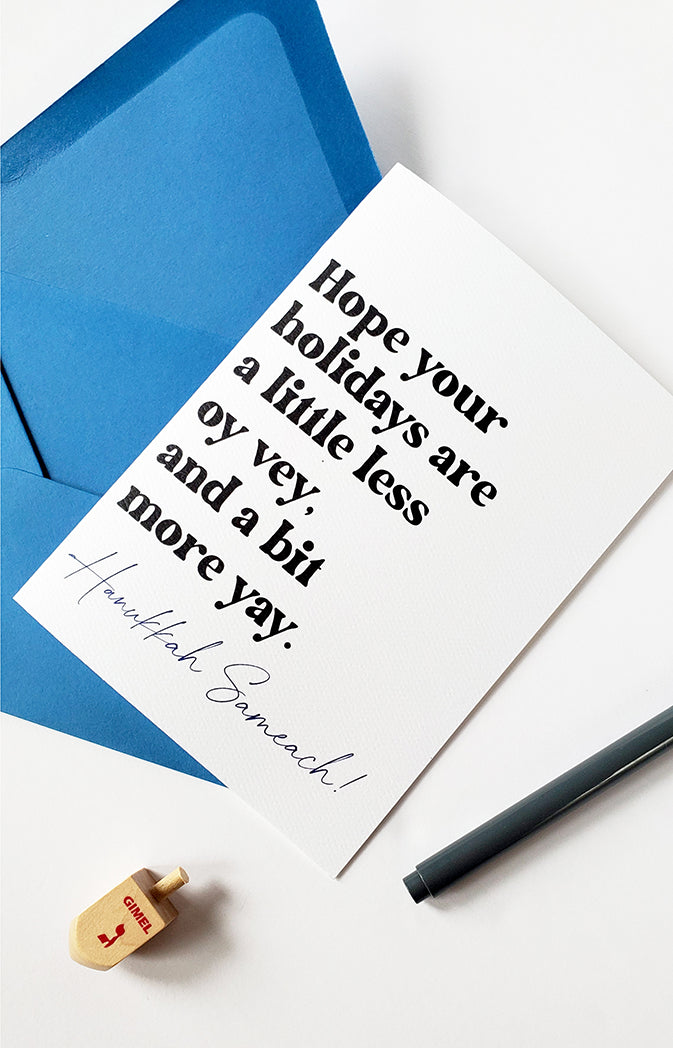 Hope your
holidays are
a little less
oy vey,
and a bit
more yay.
Hanukkah Sameach!
GIMEL
ג